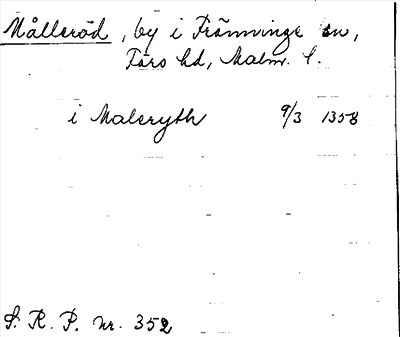 Målleröd, by i Fränninge sn,
Färs hd, Malm. l.
i Maleryth 9/3 1358
S. R. P. nr. 352